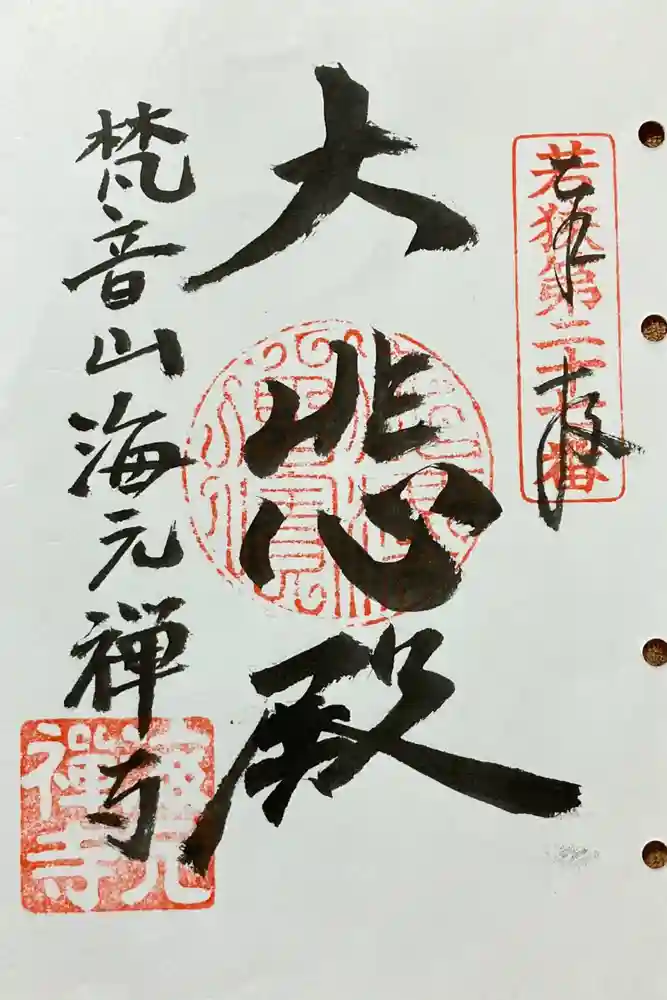 若狭第二十七番
大悲殿
梵音山海元禅寺
海元
禅寺